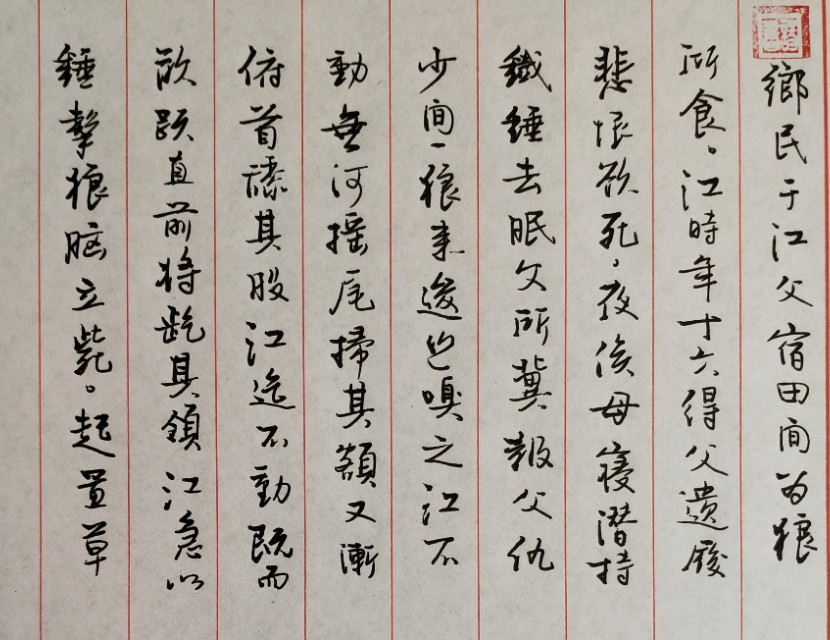 鄉民于江父宿田间为狼
所食。江時年十六得父遗履
悲恨欲死,夜俟母寝潜持
鐵錘去眠父所冀報父仇
少间一狼来逡巡嗅之江不
動無何摇尾掃其額又漸
俯首舔其股江迄不動既而
欢跃直前将龁其領江急以
錘擊狼脑立毙。起置草